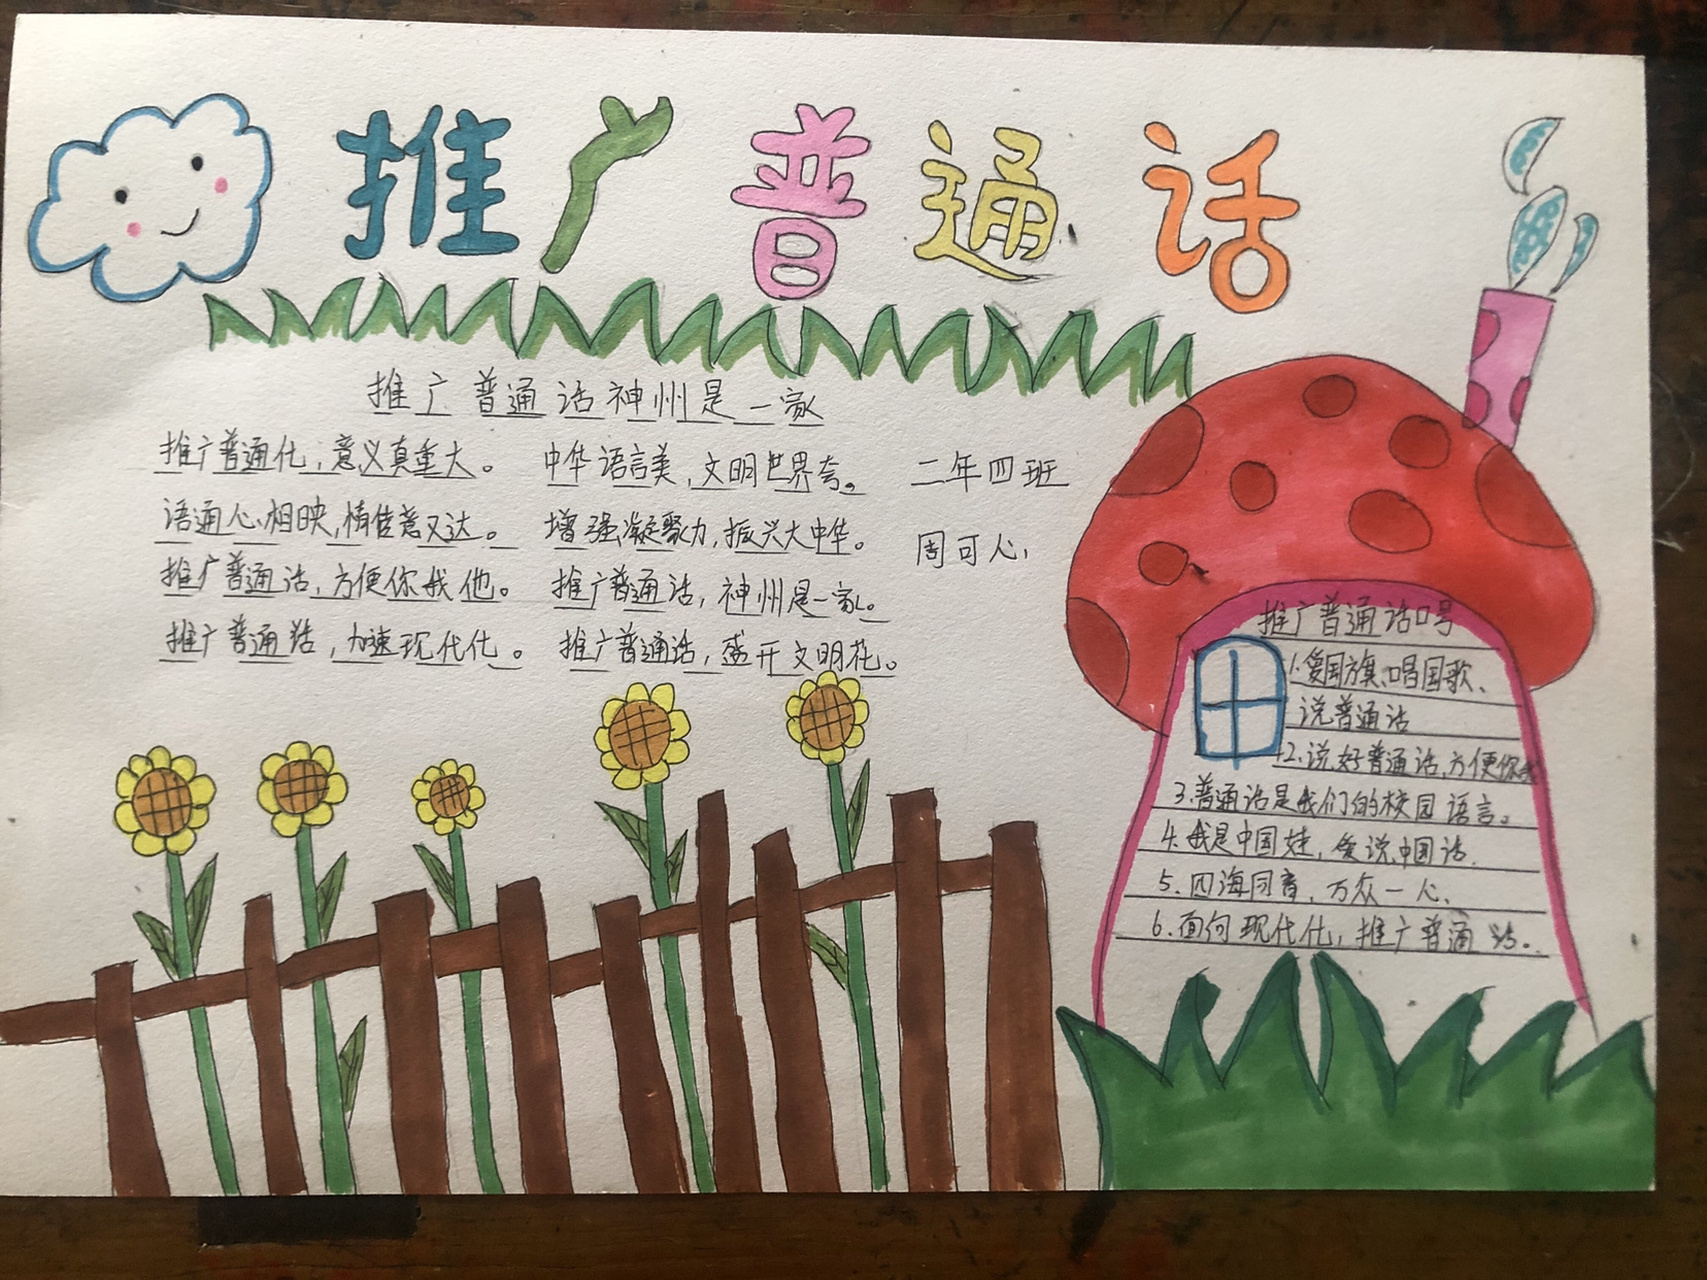 推广普通话
推广普通话神州是一家
推广普通化，意义真重大。
语通心相映，情佳意又达。
推广普通话，方便你我他。
推广普通话，加速现代化。
中华语言美，文明世界夸。
增强凝聚力，振兴大中华。
推广普通话，神州是一家。
推广普通话，盛开文明花。
二年四班
周可心
推广普通话口号
1.爱国旗、唱国歌、
说普通话
2.说好普通话，方便你我
3.普通话是我们的校园语言。
4.我是中国娃，爱说中国话.
5.四海同音，万众一心、
6.面向现代化，推广普通话。